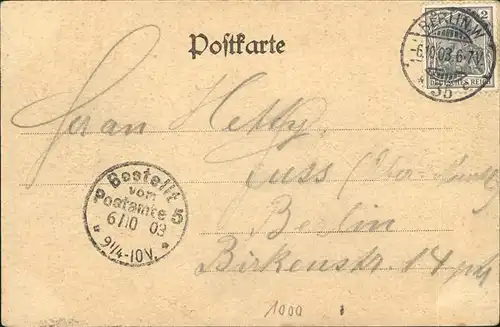 Postkarte
BERLIN.W
-6.10.03.6-7V.
* 35 c
2
DEUTSCHES REICH
Herrn Hetty
Cuss
Berlin
Birkenstr. 14 ptr
Bestellt
vom
Postamte 5
6/10 03
9 1/4-10V.
1000